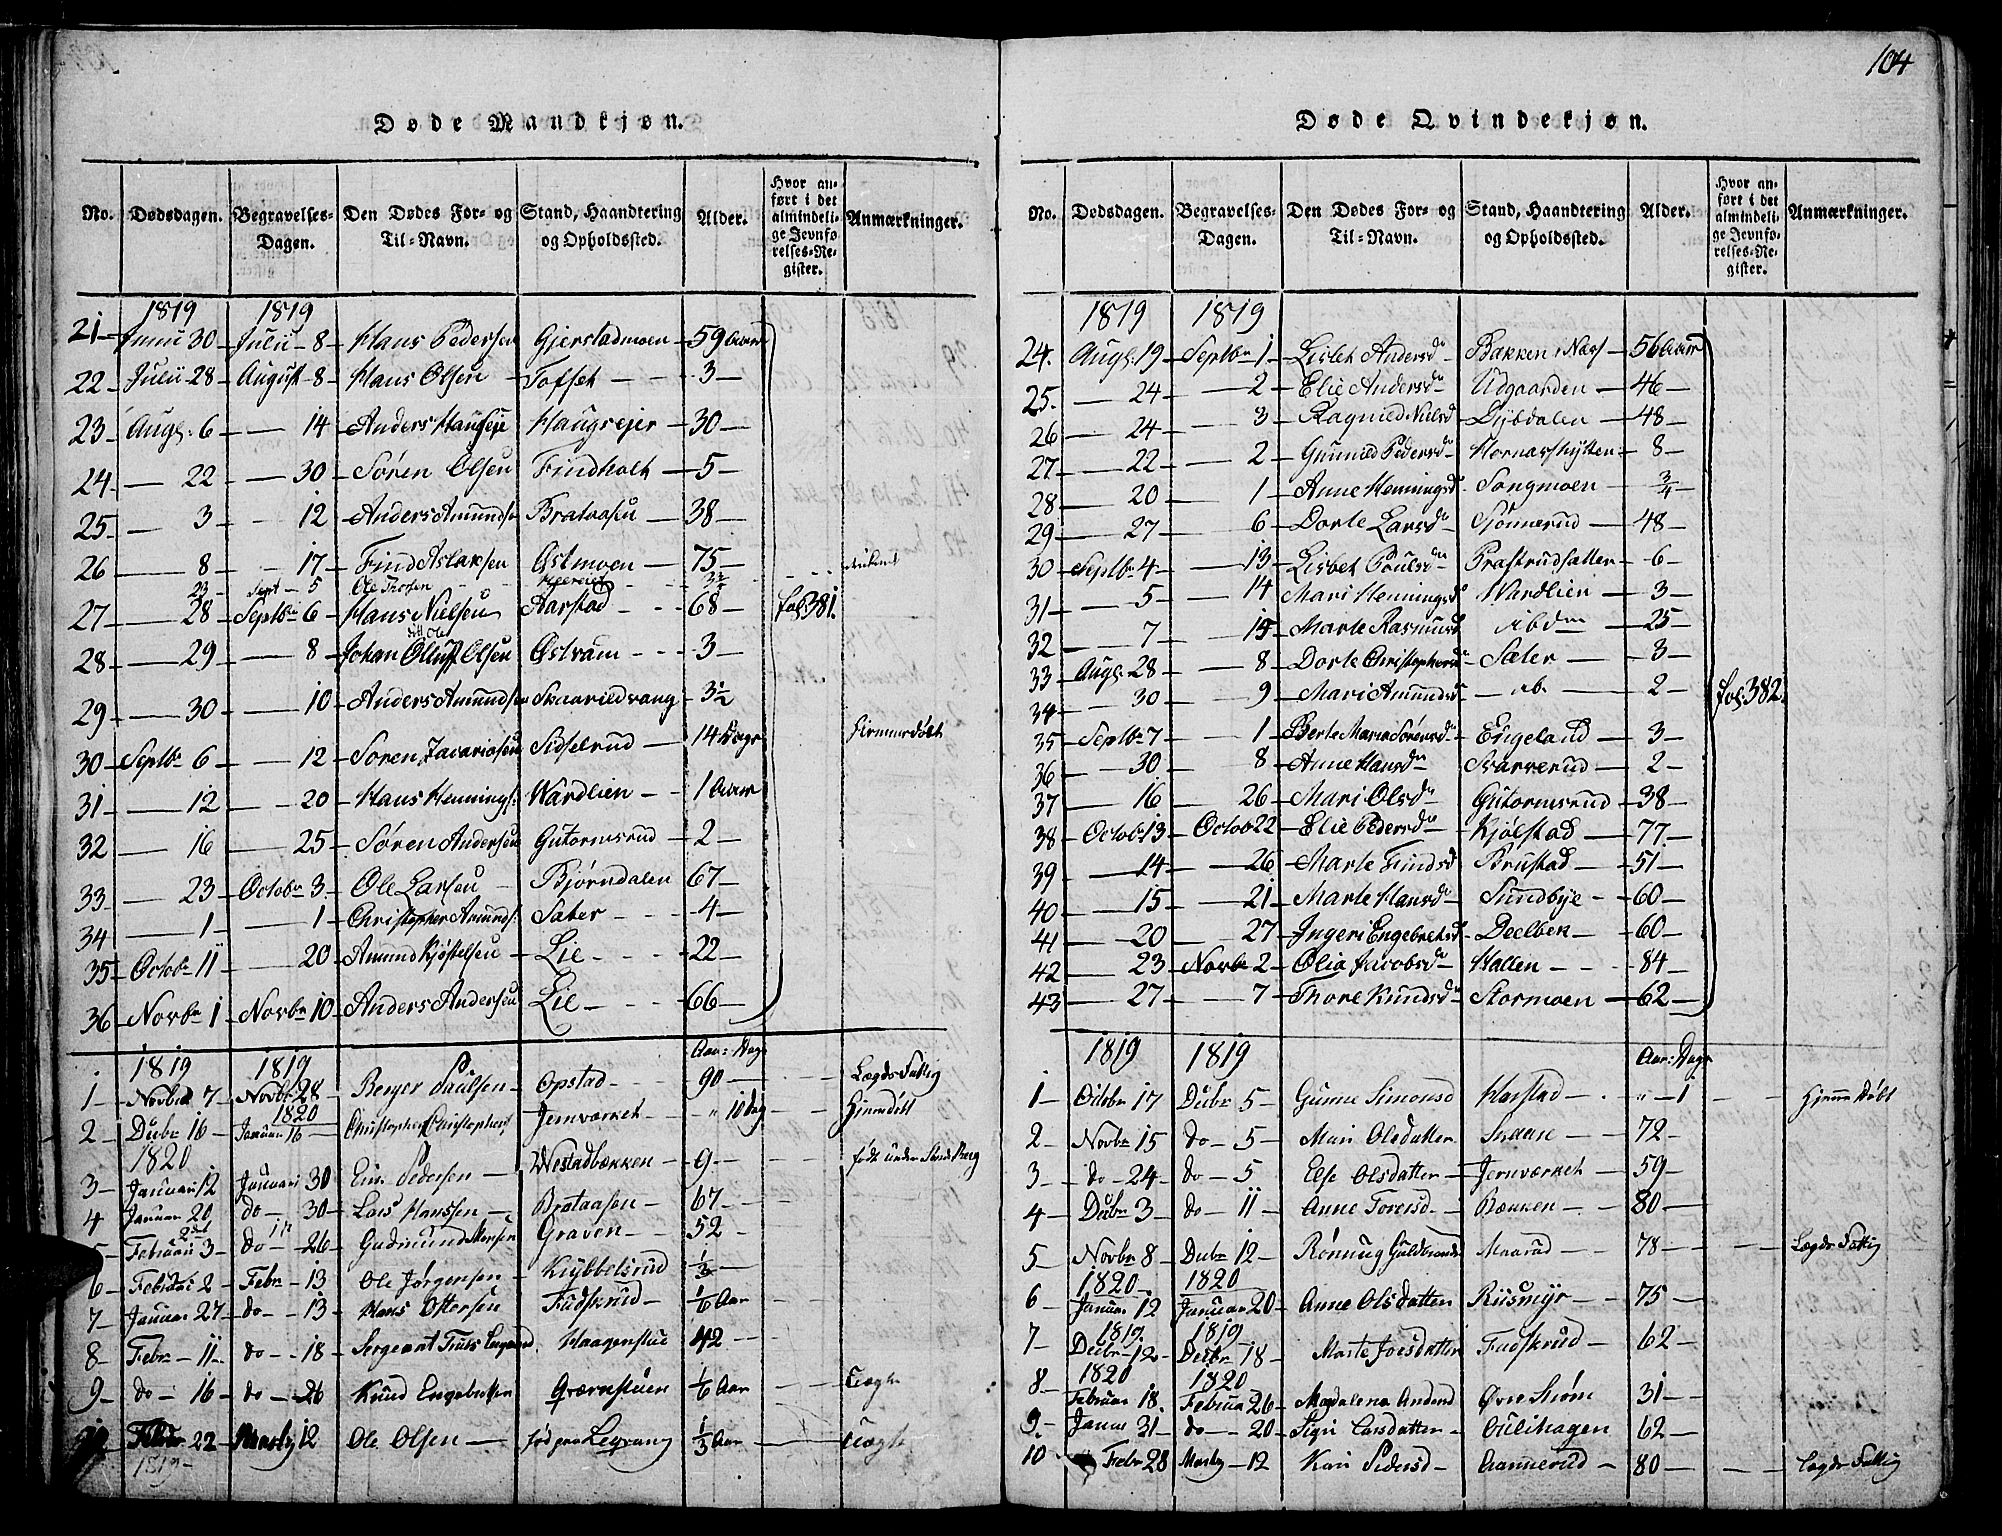 104
Døde Mandkjøn.
No. Dødsdagen. Begravelses-Dagen. Den Dødes For- og Til-Navn. Stand, Haandtering og Opholdssted. Alder. Hvor anført i det almindelige Jevnførelses-Register. Anmærkninger.
1819 1819
21 Junii 30 Julii 8 Hans Pedersen Gjerstadmoen 59 Aar
22 Julii 28 August 8 Hans Olsen Tofset 3
23 Augs. 6 14 Anders Haugreje Haugrejer 30
24 22 30 Søren Olsen Findholt 5
25 3 12 Anders Amundse Brataasen 38
26 8 17 Find Aslaksen Østmoen 75
23 Sept 5 Ole
27 28 Septbr 6 Hans Nielsen Aarstad 68 fol: 381.
28 29 8 Johan Olluf Olsen Østvam 3
29 30 10 Anders Amundsen Skaarildvang 3½
30 Septbr 6 12 Søren Zacariasen Sidselrud 14 Dage Hjemmedøbt
31 12 20 Hans Hennings: Wardlien 1 Aar
32 16 25 Søren Andersen Gutormsrud 2
33 23 Octobr 3 Ole Larsen Bjørndalen 67
34 1 1 Christopher Amunds: Sæter 4
35 Octobr 11 20 Amund Kjøstelsen Lie 22
36 Novbr 1 Novbr 10 Anders Andersen Lie 66
1819 1819 Aar: Dage
1 Novbr 7 Novbr 28 Berger Paulsen Opstad 90 Lægds Fattig
1820
2 Decbr 16 Januar 16 Christopher Christophers: Jernværket " 10 Dag Hjemdøbt
1820
3 Januar 12 Januari 30 Pedersen Westadbækken 9
4 Januar 20 do 30 Lars Hanssen Brataasen 67
5 Februari 3 do 26 Gudmund Graven 52
6 Februari 2 Febr 13 Ole Jørgensen Knybbelsrud ⅓
7 Januar 27 do 13 Hans Ottersen Fudskrud ⅙ Aar
8 Febr 11 do 18 Sergeant Haagenstue 42
9 do 16 do 26 Knud Engebretsen Qværnstuen ⅙ Aar
10 Febr 22 Marty 12 Ole Olsen Legvang ⅓ Aar
1819
Døde Qvindekjøn.
No. Dødsdagen. Begravelses-Dagen. Den Dødes For- og Til-Navn. Stand, Haandtering og Opholdssted. Alder. Hvor anført i det almindelige Jevnførelses-Register. Anmærkninger.
1819 1819
24. Augs. 19 Septbr 1 Lisbet Andersdr Bakken i Næs 56 Aar
25. 24 2 Elie Andersdr Udgaarden 46
26 24 3 Ragnild Nielsd Dybdalen 48
27 22 2 Gunnild Pedersdr Hornæshytten 8
28 20 1 Anne Henningsd Songmoen ¾
29 27 6 Dorte Larsdr Sønnerud 48
30 Septbr 4 13 Lisbet Poulsdr Prastrudsætter 6
31 5 14 Mari Henningsd Wardlien 3
32 7 15 Marte Rasmusd ibdm 25
33 Augs. 28 8 Dorte Christophersdr Sæter 3
34 30 9 Mari Amundsd ib. 2 fol: 382.
35 Septbr 7 1 Berte Maria Sørensdr Engeland 3
36 30 8 Anne Hansdr Svarverud 2
37 16 26 Mari Olsdr Gutormsrud 38
38 Octobr 13 Octob 22 Elie Pedersdr Kjølstad 77
39 14 26 Marte Findsd Brustad 51
40 15 21 Marte Hansdr Sundbye 60
41 20 27 Ingeri Engebretsd Deelbek 60
42 23 Novbr 2 Olia Jacobsdr Hallen 84
43 27 7 Thore Knudsdr Stormoen 62
1819 1819 Aar: Dage
1 Octobr 17 Decbr 5 Gunne Simonsd Harstad " 1 Hjemmedøbt
2 Novbr 15 do 5 Mari Olsdatter 72
3 do 24 do 5 Else Olsdatter Jernværket 59
4 Decbr 3 do 11 Anne Toresd Bækken 80
5 Novbr 8 Decbr 12 Rønnug Guldbrands Maarud 78 Lægds Fattig
1820 1820
6 Januar 12 Januar 20 Anne Olsdatter Riismyr 75
1819. 1819
7 Decbr 12 Decbr 18 Marte Joesdatter Fudskrud 62
1820 1820
8 Februar 18. Februar 26 Magdalena Andersd Øvre Strøm 31
9 Januar 31 do 20 Sigri Larsdatter Oulihagen 62
10 Febr 28 Marty 12 Kari Pedersd Aannerud 80 Lægds Fattig